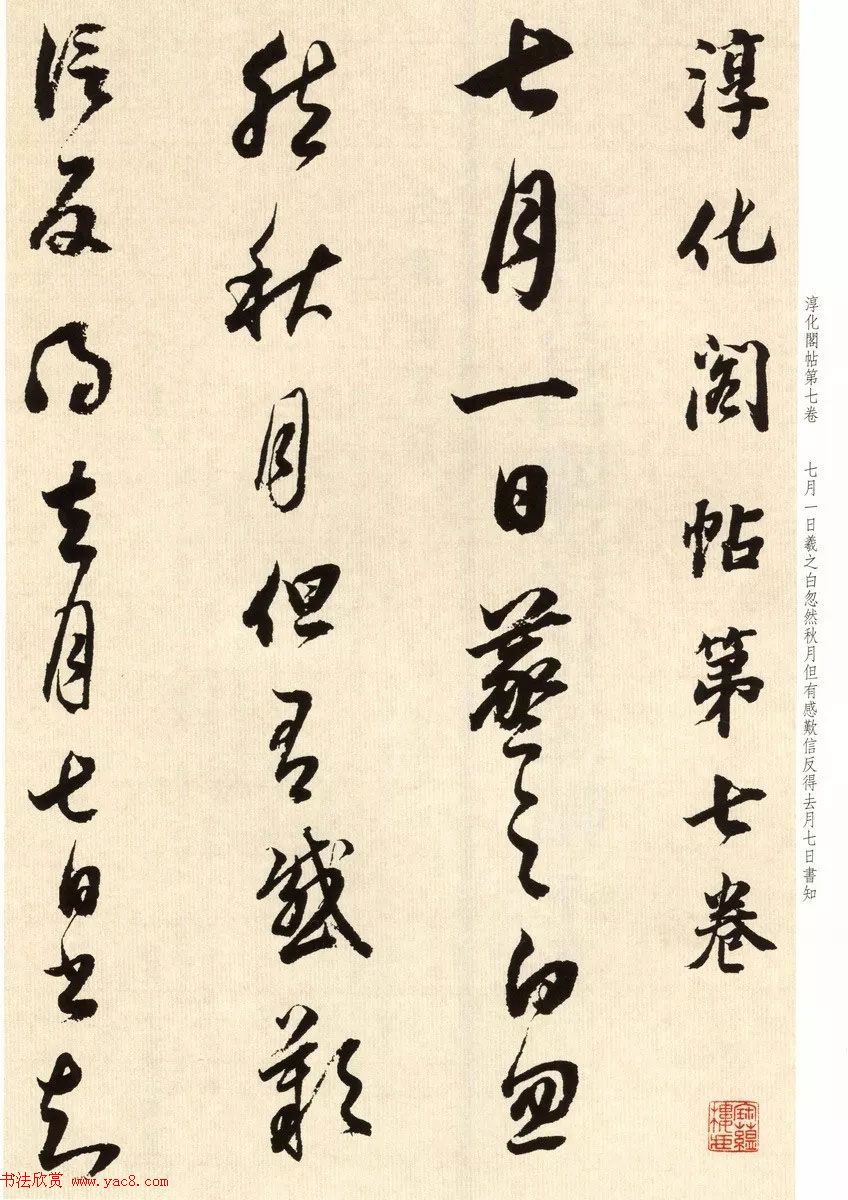 淳化阁帖第七卷
七月一日羲之白忽
然秋月但有感歎
信反得去月七日書知
淳化閣帖第七卷　七月一日羲之白忽然秋月但有感歎信反得去月七日書知
书法欣赏 www.yac8.com